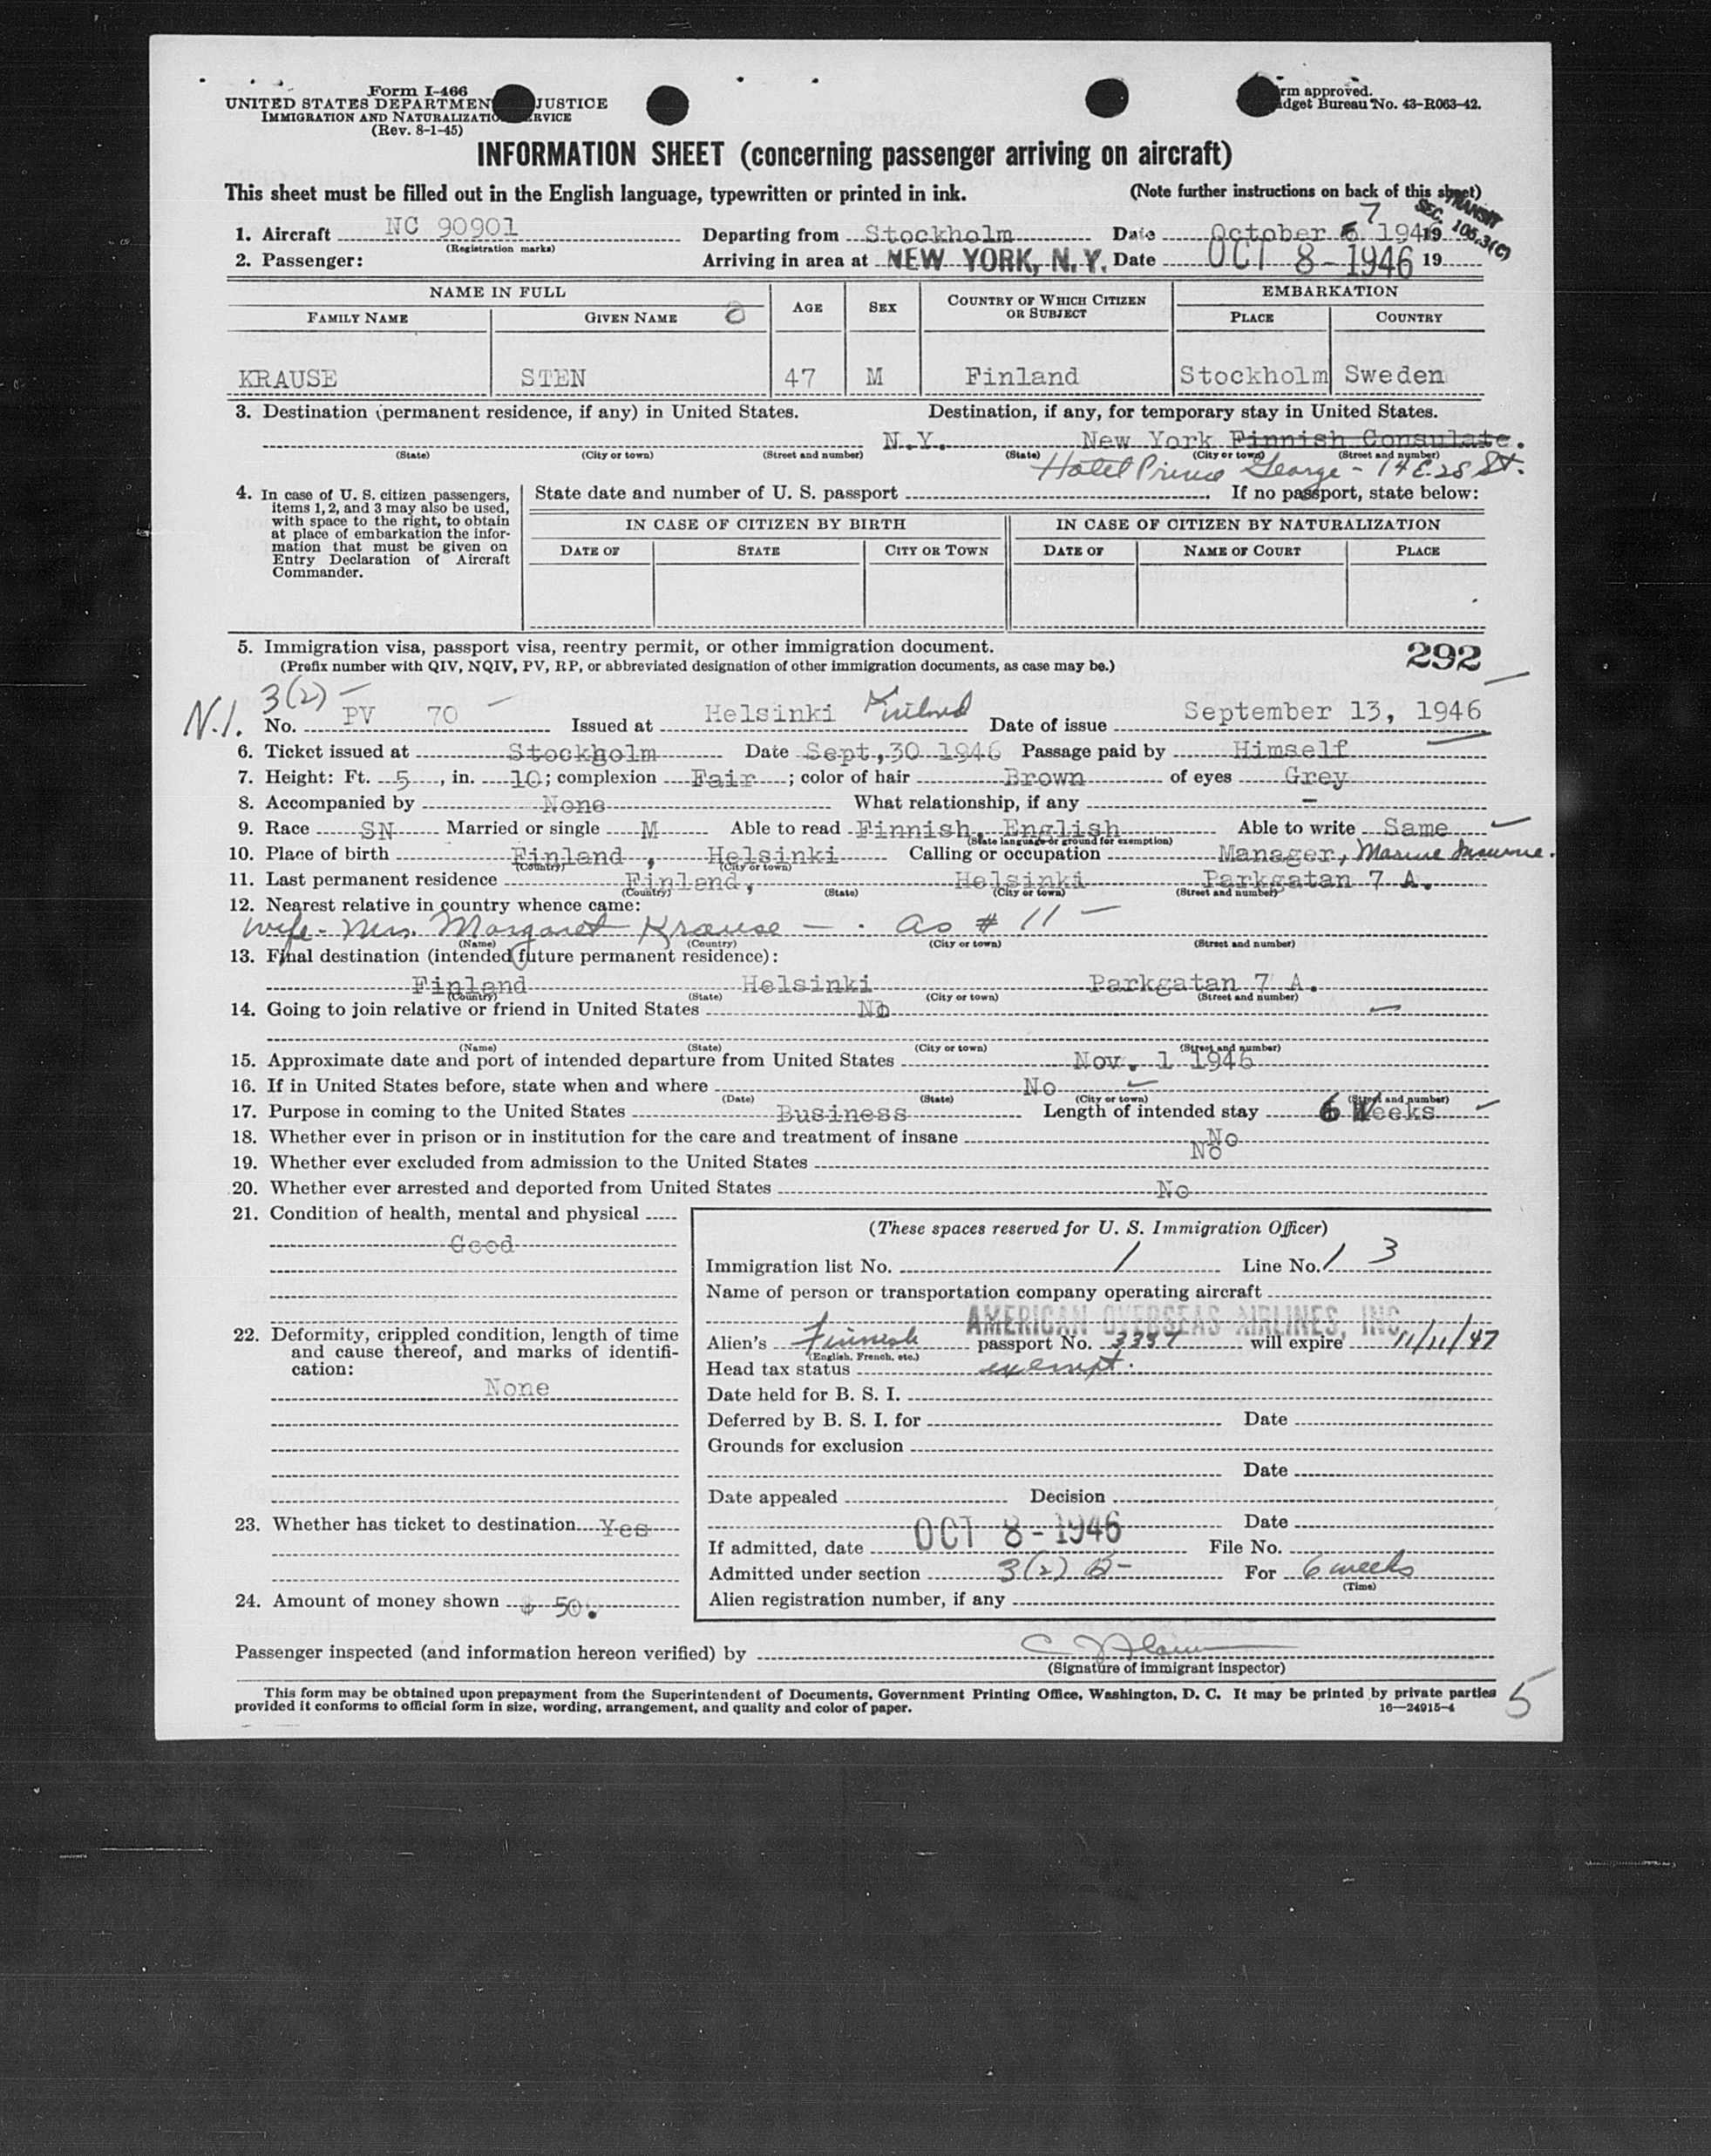 Form I-466
UNITED STATES DEPARTMEN JUSTICE
IMMIGRATION AND NATURALIZATIO RVICE
(Rev. 8-1-45)
rm approved.
dget Bureau No. 43-R063-42.
INFORMATION SHEET (concerning passenger arriving on aircraft)
This sheet must be filled out in the English language, typewritten or printed in ink. (Note further instructions on back of this sheet)
TRANSIT
SEC. 105.3(C)
1. Aircraft NC 90901 Departing from Stockholm Date October 7 1946 19
(Registration marks)
2. Passenger: Arriving in area at NEW YORK, N.Y. Date OCT 8-1946 19
NAME IN FULL AGE SEX COUNTRY OF WHICH CITIZEN OR SUBJECT EMBARKATION
FAMILY NAME GIVEN NAME PLACE COUNTRY
KRAUSE STEN 47 M Finland Stockholm Sweden
3. Destination (permanent residence, if any) in United States. Destination, if any, for temporary stay in United States.
N.Y. New York Finnish Consulate.
(State) (City or town) (Street and number) (State) (City or town) (Street and number)
Hotel Prince George - 14 E. 28 St.
4. In case of U. S. citizen passengers, items 1, 2, and 3 may also be used, with space to the right, to obtain at place of embarkation the information that must be given on Entry Declaration of Aircraft Commander.
State date and number of U. S. passport If no passport, state below:
IN CASE OF CITIZEN BY BIRTH IN CASE OF CITIZEN BY NATURALIZATION
DATE OF STATE CITY OR TOWN DATE OF NAME OF COURT PLACE
5. Immigration visa, passport visa, reentry permit, or other immigration document.
(Prefix number with QIV, NQIV, PV, RP, or abbreviated designation of other immigration documents, as case may be.)
292
3(2) -
N.I. No. PV 70 Issued at Helsinki Date of issue September 13, 1946
6. Ticket issued at Stockholm Date Sept, 30 1946 Passage paid by Himself
7. Height: Ft. 5, in. 10; complexion Fair; color of hair Brown of eyes Grey
8. Accompanied by None What relationship, if any -
9. Race SN Married or single M Able to read Finnish, English Able to write Same
(State language or ground for exemption)
10. Place of birth Finland, Helsinki Calling or occupation Manager, Marine Insurance.
(Country) (City or town)
11. Last permanent residence Finland, Helsinki Parkgatan 7 A.
(Country) (State) (City or town) (Street and number)
12. Nearest relative in country whence came:
wife - Mrs. Margaret Krause - as # 11 -
(Name) (Country) (City or town) (Street and number)
13. Final destination (intended future permanent residence):
Finland Helsinki Parkgatan 7 A.
(Country) (State) (City or town) (Street and number)
14. Going to join relative or friend in United States No
(Name) (State) (City or town) (Street and number)
15. Approximate date and port of intended departure from United States Nov. 1 1946
16. If in United States before, state when and where No
(Date) (State) (City or town) (Street and number)
17. Purpose in coming to the United States Business Length of intended stay 6 Weeks
18. Whether ever in prison or in institution for the care and treatment of insane No
19. Whether ever excluded from admission to the United States No
20. Whether ever arrested and deported from United States No
21. Condition of health, mental and physical
Good
22. Deformity, crippled condition, length of time and cause thereof, and marks of identification:
None
23. Whether has ticket to destination Yes
24. Amount of money shown $ 50.
(These spaces reserved for U. S. Immigration Officer)
Immigration list No. 1 Line No. 1 3
Name of person or transportation company operating aircraft
AMERICAN OVERSEAS AIRLINES, INC.
Alien's Finnish passport No. 3337 will expire 11/11/47
(English, French, etc.)
Head tax status exempt.
Date held for B. S. I.
Deferred by B. S. I. for Date
Grounds for exclusion
Date
Date appealed Decision
Date
If admitted, date OCT 8-1946 File No.
Admitted under section 3(2) B- For 6 weeks
(Time)
Alien registration number, if any
Passenger inspected (and information hereon verified) by
(Signature of immigrant inspector)
This form may be obtained upon prepayment from the Superintendent of Documents, Government Printing Office, Washington, D. C. It may be printed by private parties
provided it conforms to official form in size, wording, arrangement, and quality and color of paper. 16—24915-4
5